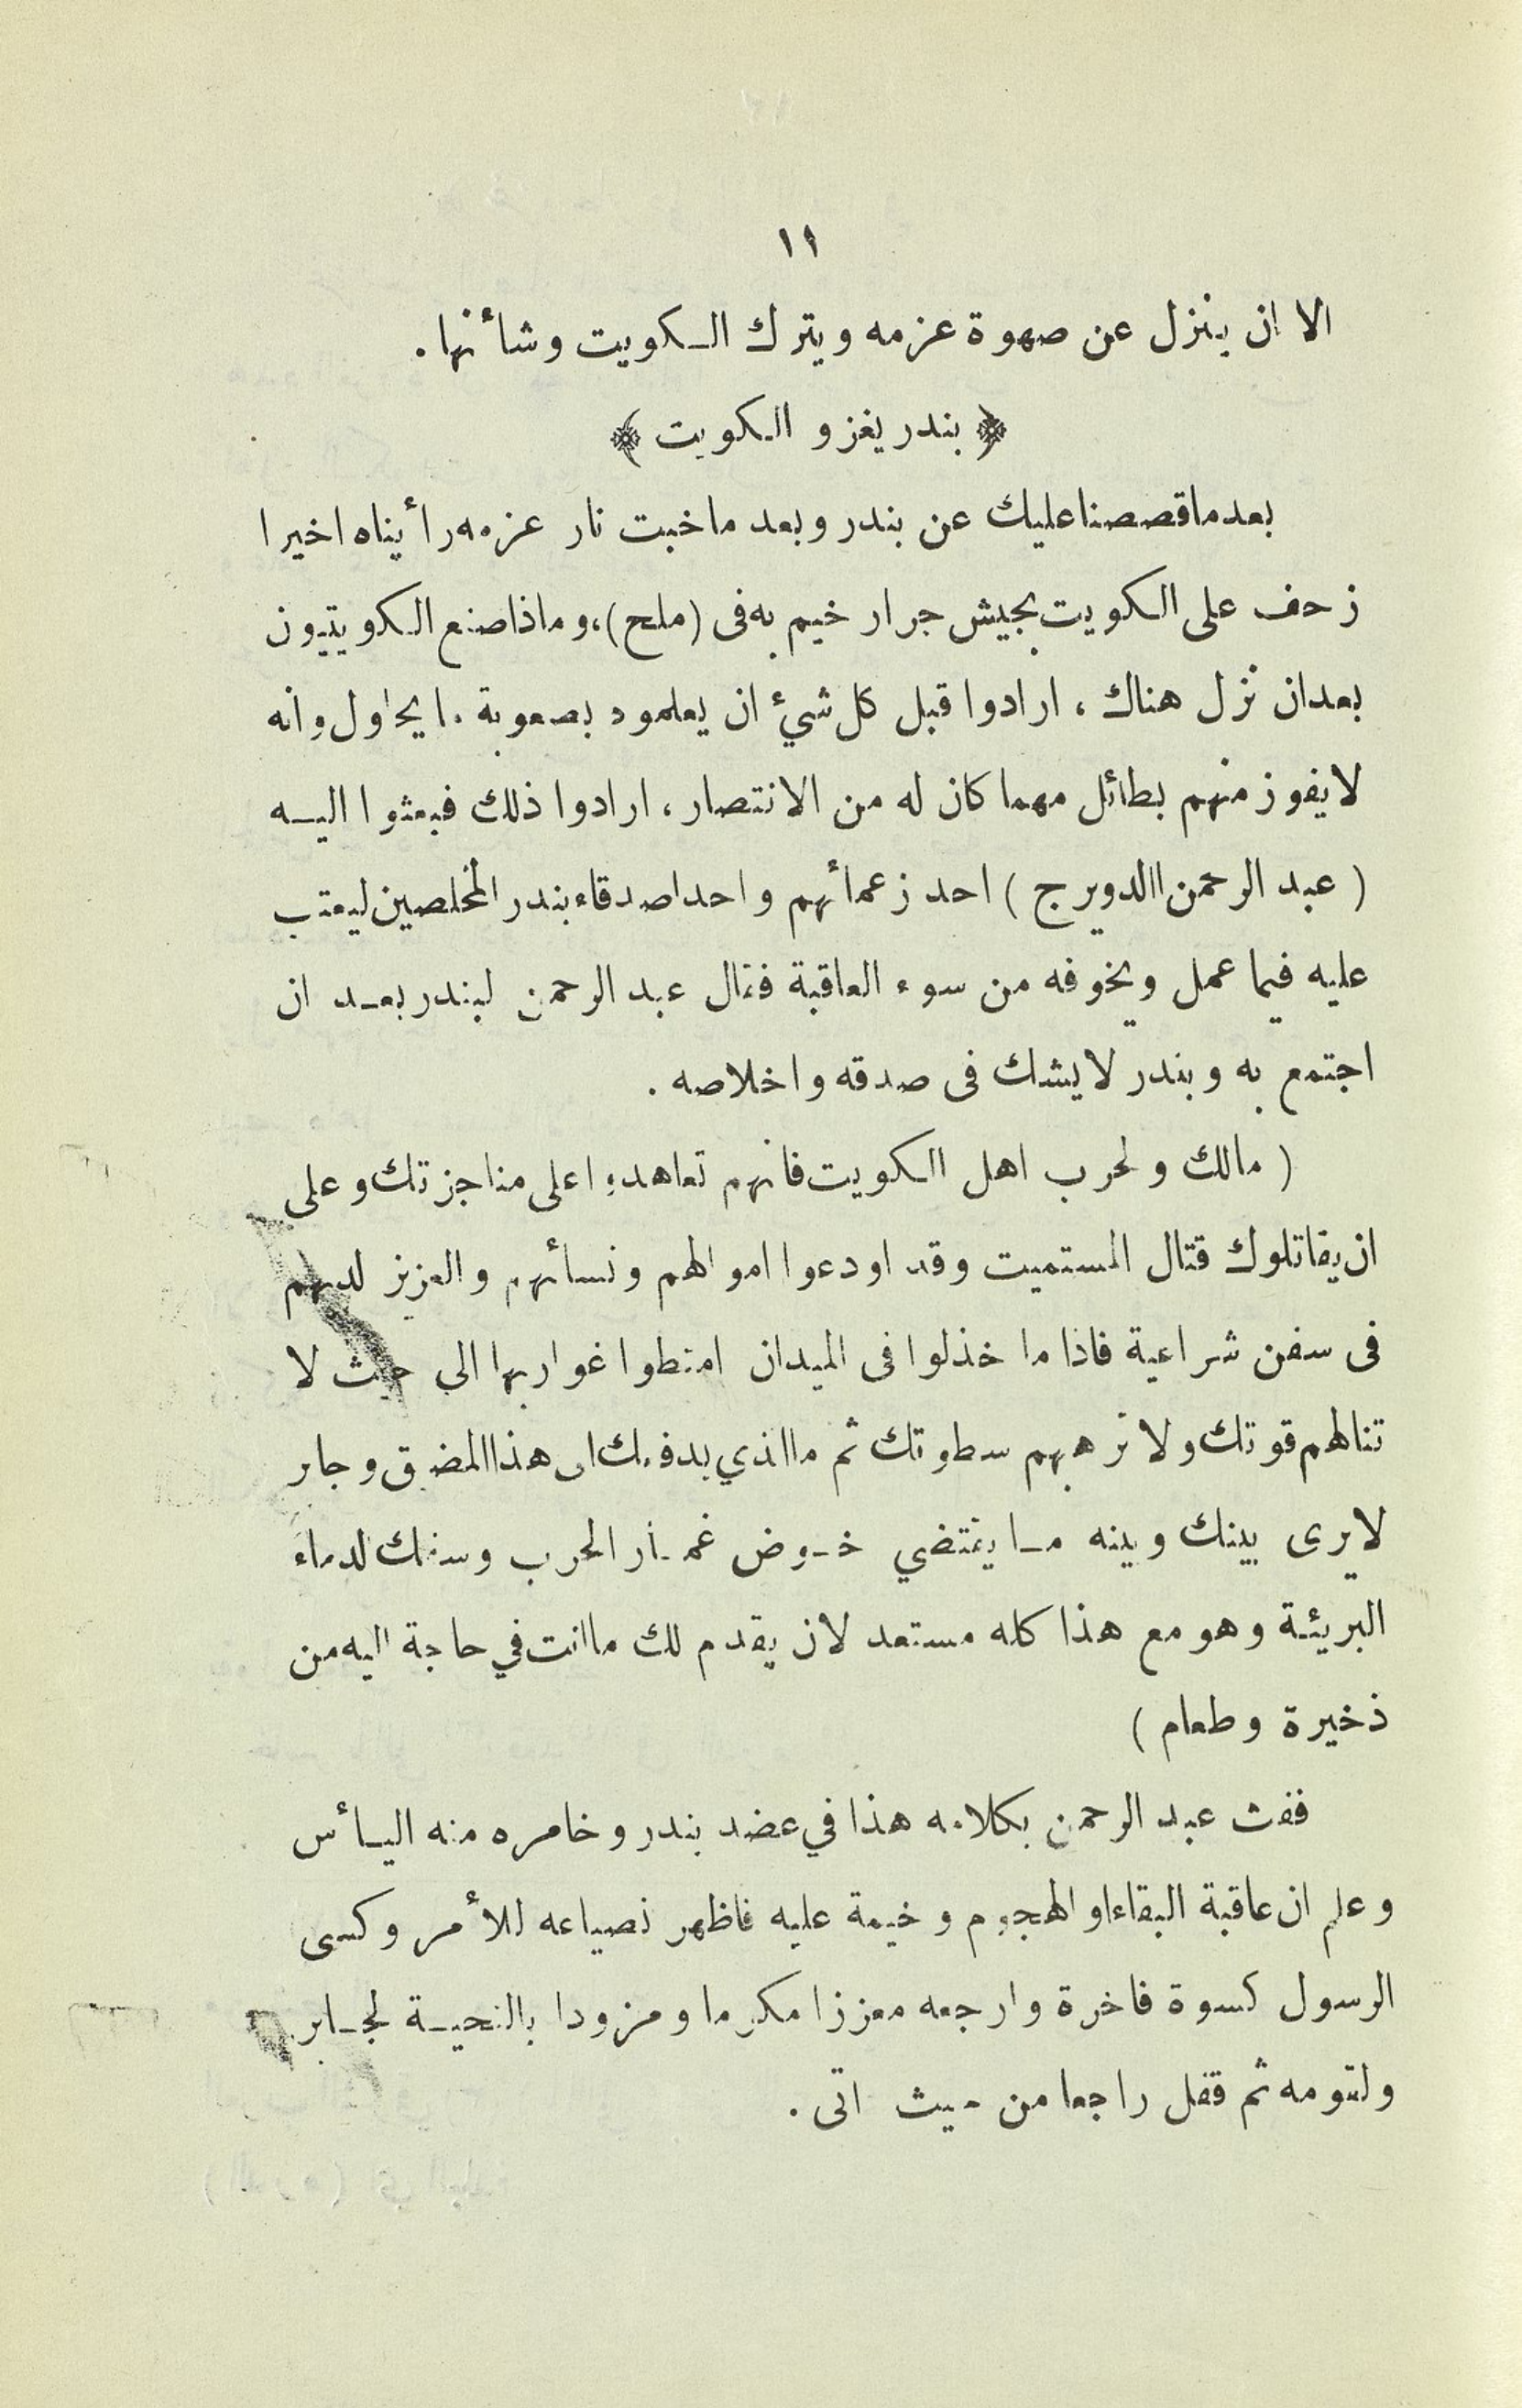 ١١
الا ان ينزل عن صهوة عزمه ويترك الكويت وشأنها.
﴿ بندر يغزو الكويت ﴾
بعد ما قصصنا عليك عن بندر وبعد ما خبت نار عزمه رأيناه اخيرا
زحف على الكويت بجيش جرار خيم به فى (ملح)، وماذا صنع الكويتيون
بعد ان نزل هناك، ارادوا قبل كل شيء ان يعلموه بصعوبة ما يحاول وانه
لا يفوز منهم بطائل مهما كان له من الانتصار، ارادوا ذلك فبعثوا اليه
( عبد الرحمن الدويرج ) احد زعمأئهم واحد اصدقاء بندر المخلصين ليعتب
عليه فيما عمل ويخوفه من سوء العاقبة فقال عبد الرحمن لبندر بعد ان
اجتمع به وبندر لا يشك فى صدقه واخلاصه.
( مالك ولحرب اهل الكويت فانهم تعاهدوا على مناجزتك وعلى
ان يقاتلوك قتال المستميت وقد اودعوا اموالهم ونسأئهم والعزيز لديهم
فى سفن شراعية فاذا ما خذلوا فى الميدان امتطوا غواربها الى حيث لا
تنالهم قوتك ولا ترهبهم سطوتك ثم ما الذي يدفعك الى هذا المضيق وجابر
لا يرى بينك وبينه ما يقتضي خوض غمار الحرب وسفك لدماء
البريئة وهو مع هذا كله مستعد لان يقدم لك ما انت في حاجة اليه من
ذخيرة وطعام )
ففت عبد الرحمن بكلامه هذا في عضد بندر وخامره منه اليأس
وعلم ان عاقبة البقاء او الهجوم وخيمة عليه فاظهر نصياعه للأمر وكسى
الرسول كسوة فاخرة وارجعه معززا مكرما ومزودا بالتحية لجابر
ولقومه ثم قفل راجعا من حيث اتى.